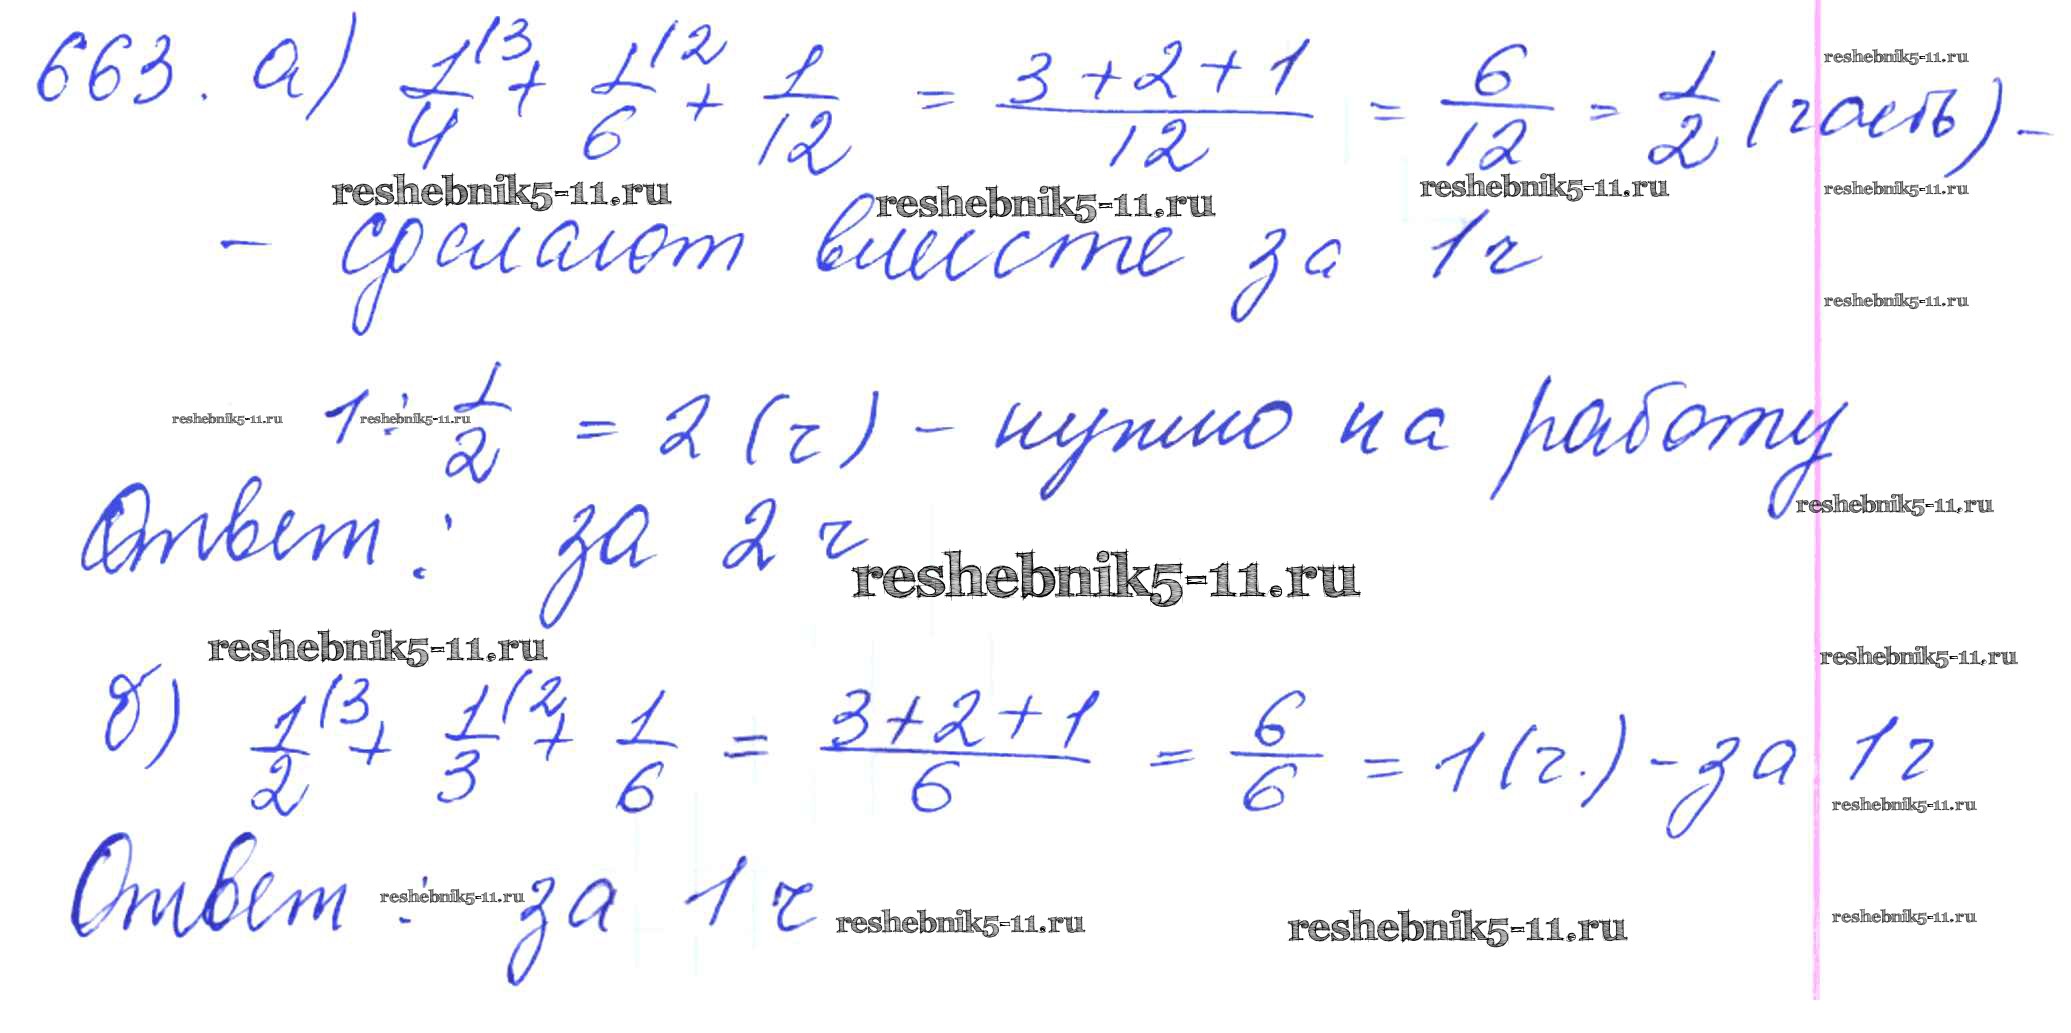 663. а) 1/4 (3 + 1/6 (2 + 1/12 = 3+2+1/12 = 6/12 = 1/2 (часть) -
reshebnik5-11.ru
reshebnik5-11.ru reshebnik5-11.ru reshebnik5-11.ru reshebnik5-11.ru
- сделают вместе за 1 ч
reshebnik5-11.ru
reshebnik5-11.ru reshebnik5-11.ru
1 : 1/2 = 2 (ч) - нужно на работу
reshebnik5-11.ru
Ответ: за 2 ч
reshebnik5-11.ru
reshebnik5-11.ru reshebnik5-11.ru
б) 1/2 (3 + 1/3 (2 + 1/6 = 3+2+1/6 = 6/6 = 1 (ч.) - за 1 ч
reshebnik5-11.ru
Ответ: за 1 ч
reshebnik5-11.ru reshebnik5-11.ru reshebnik5-11.ru reshebnik5-11.ru